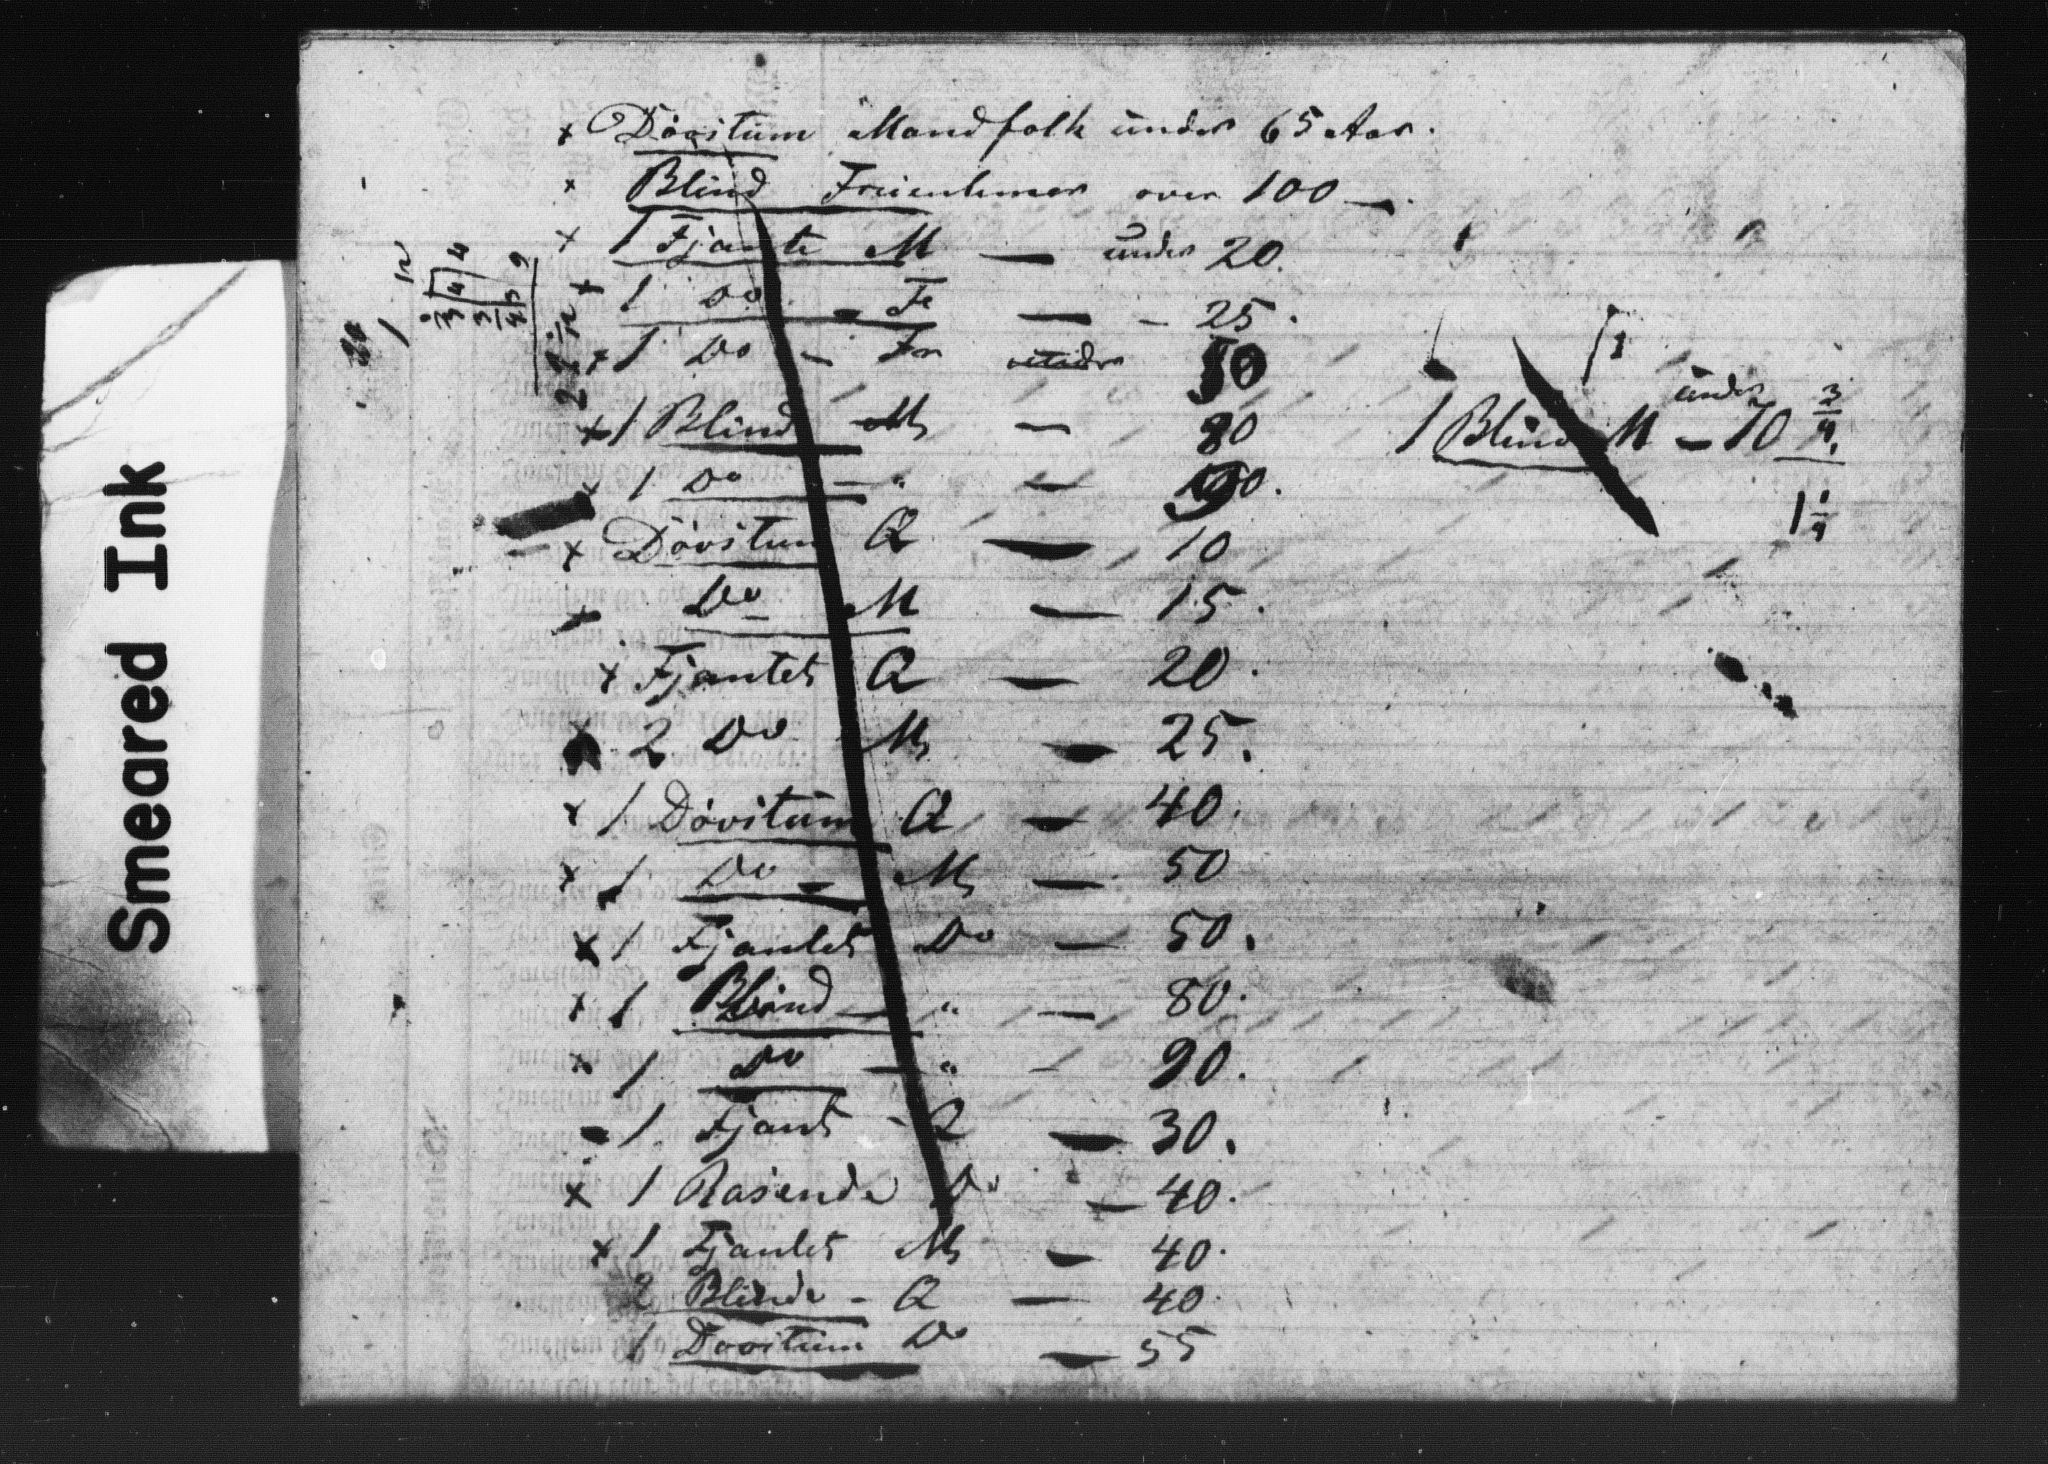 Smeared Ink
x Døvstum Mandfolk under 65 Aar.
x Blind Fruentimer over 100 —.
x 1 Fjante M — under 20.
x 1 Do — Fr — 25.
x 1 Do — Fr 50
x 1 Blind M — 80
x 1 Do — " —
x Døvstum Q — 10
x Do M — 15.
x Fjantet Q — 20.
x 2 Do M — 25.
x 1 Døvstum Q — 40.
x 1 Do — M — 50
x 1 Fjantet Do — 50.
x 1 Blind — " — 80.
x 1 Do — " — 90.
1 Fjant - Q — 30.
x 1 Rasende Do — 40.
x 1 Fjantet M — 40.
2 Blinde - Q — 40.
1 Døvstum Do — 55
under
1 Blind M — 10 3/4
1 1/4